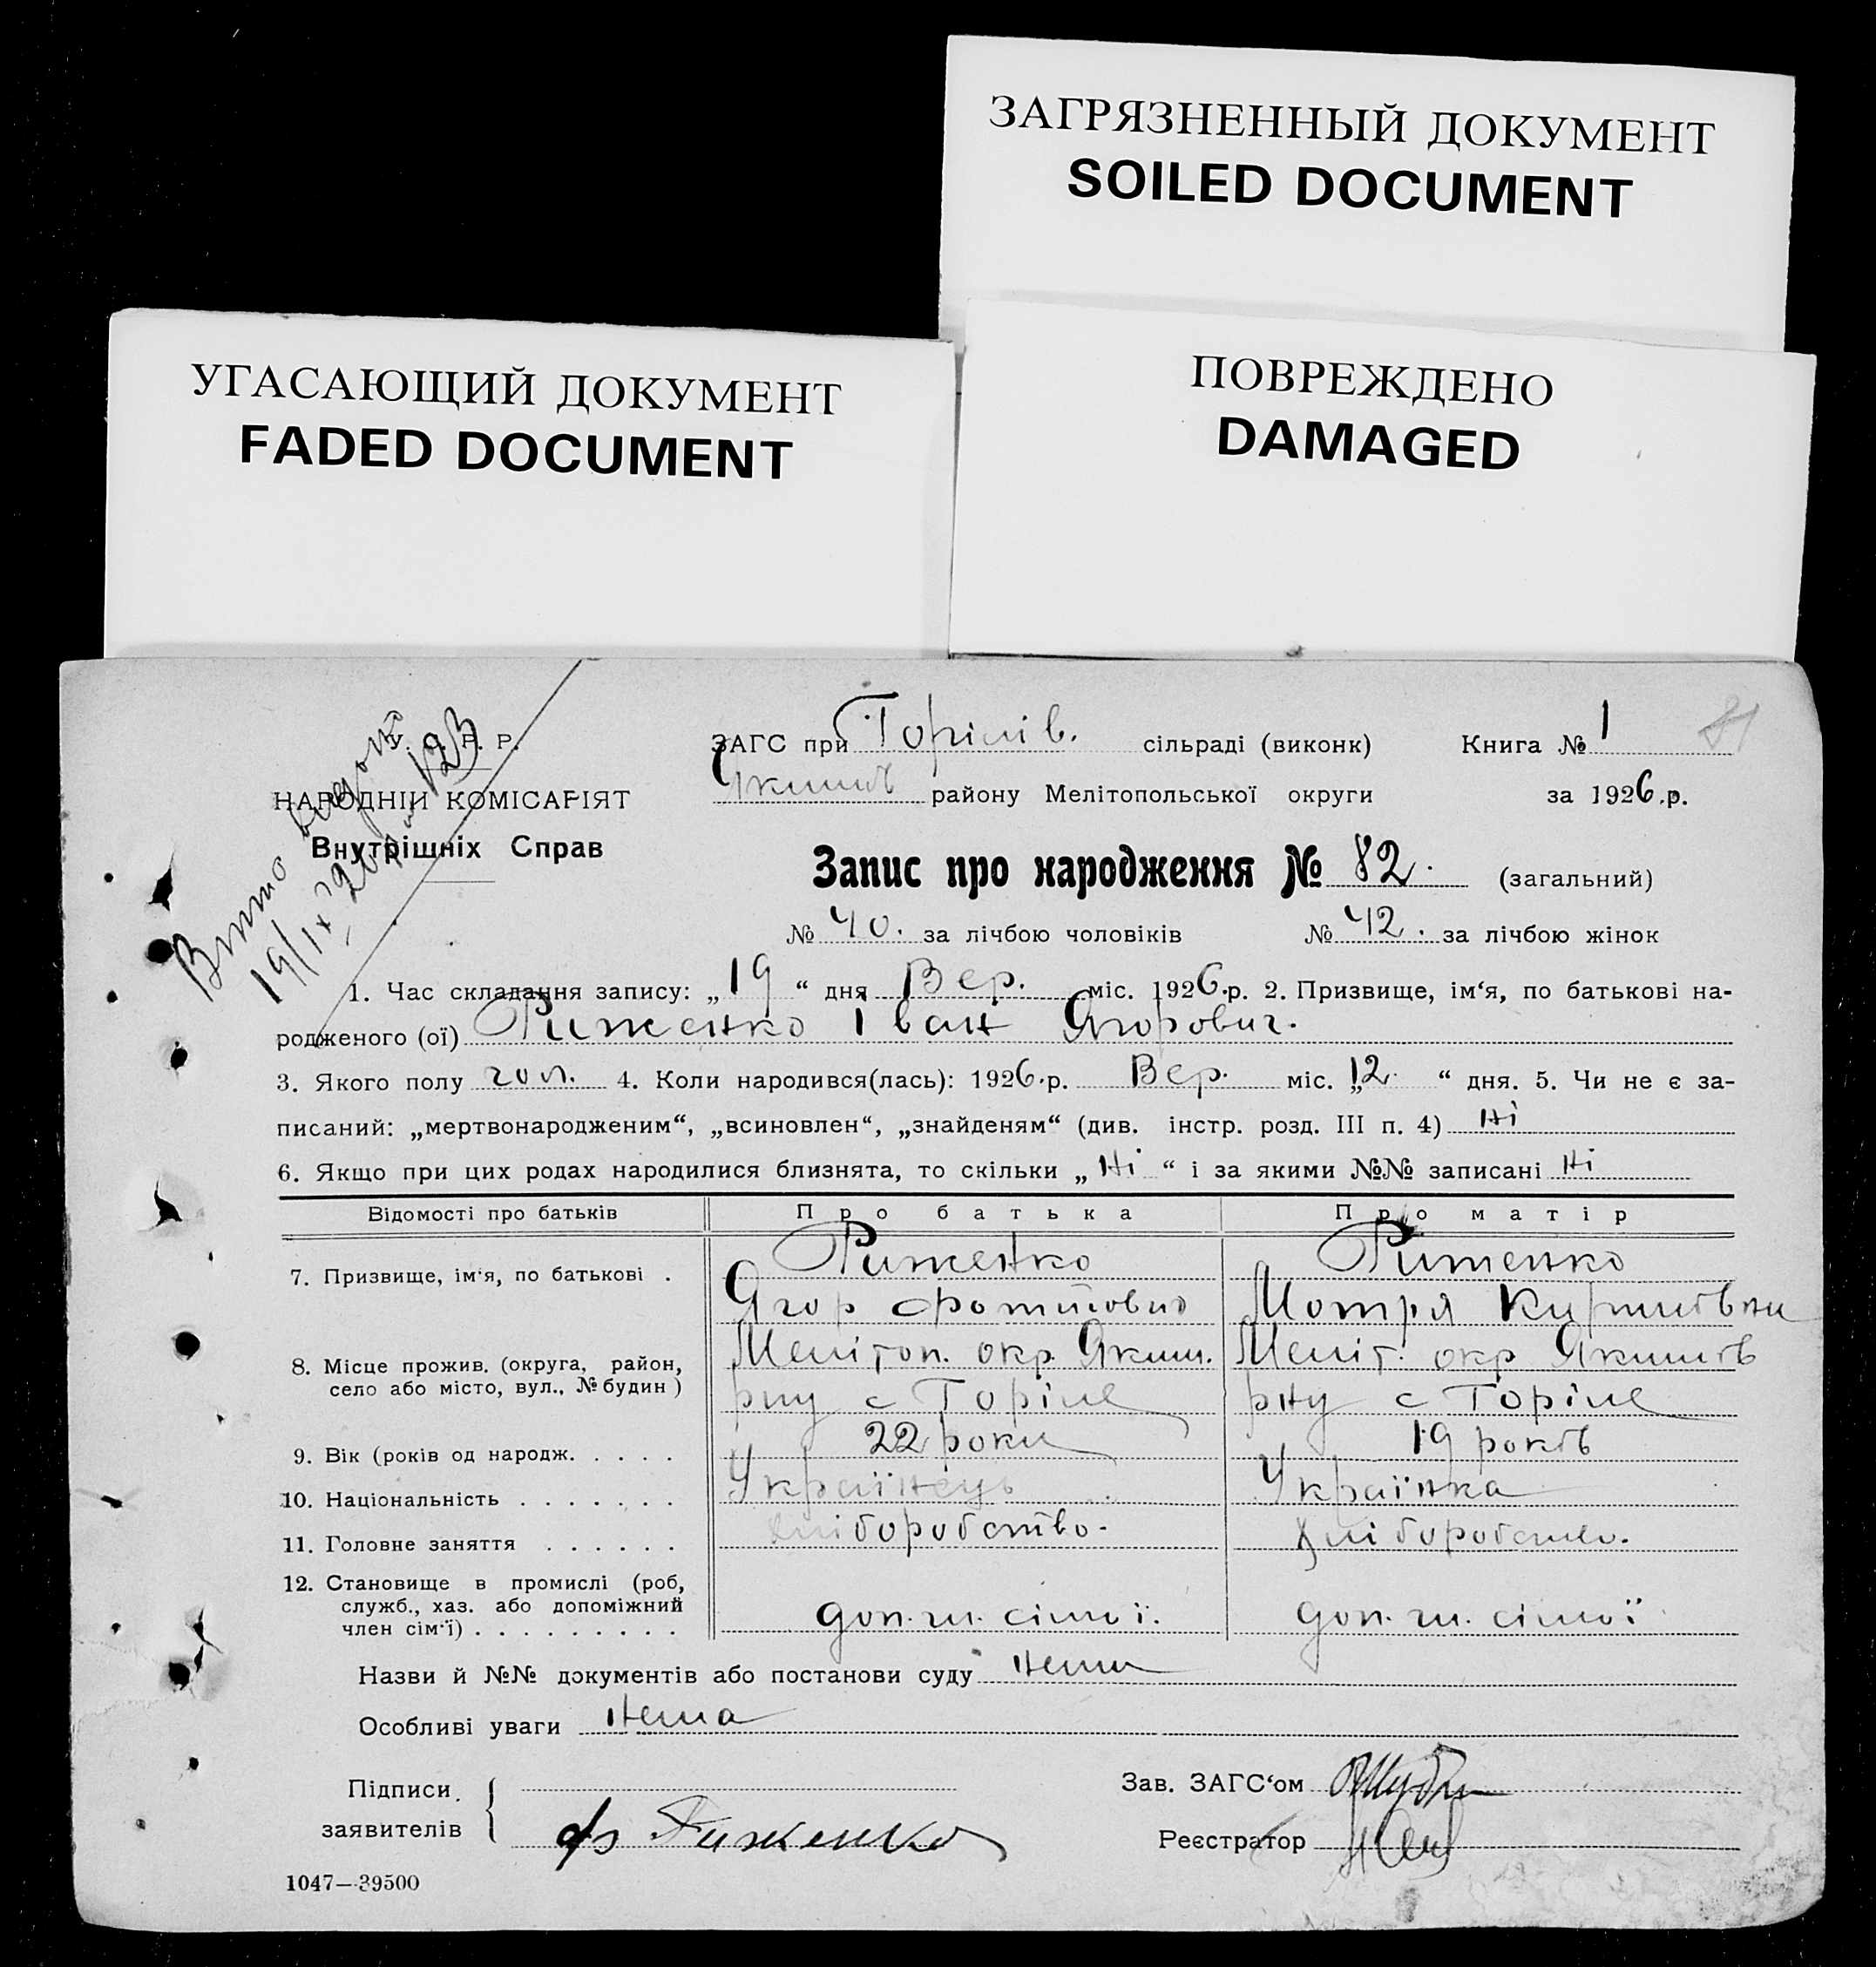 ЗАГРЯЗНЕННЫЙ ДОКУМЕНТ
SOILED DOCUMENT
УГАСАЮЩИЙ ДОКУМЕНТ
FADED DOCUMENT
ПОВРЕЖДЕНО
DAMAGED
У. С. Р. Р.
НАРОДНІЙ КОМІСАРІЯТ
Внутрішніх Справ
19/IX 26 123
ЗАГС при Горілів. сільраді (виконк) Книга № 1 81
Якимів району Мелітопольської округи за 1926.р.
Запис про народження № 82. (загальний)
№ 40. за лічбою чоловіків № 42. за лічбою жінок
1. Час складання запису: „19“ дня Вер. міс. 1926.р. 2. Призвище, ім‘я, по батькові на-
родженого (ої) Риженко Іван Ягорович.
3. Якого полу чол. 4. Коли народився(лась): 1926.р. Вер. міс. „12“ дня. 5. Чи не є за-
писаний: „мертвонародженим“, „всиновлен“, „знайденям“ (див. інстр. розд. III п. 4) Ні
6. Якщо при цих родах народилися близнята, то скільки „Ні“ і за якими №№ записані Ні
Відомості про батьків Про батька Про матір
7. Призвище, ім‘я, по батькові . Риженко Риженко
Ягор Мотря
8. Місце прожив. (округа, район, Мелітоп. окр. Яким. Меліт. окр Якимів
село або місто, вул., № будин) рну с Горіле рну с Горіле
9. Вік (років од народж. . . . . 22 роки 19 років
10. Національність . . . . . . . Українець Українка
11. Головне заняття . . . . . . Хліборобство. Хліборобство.
12. Становище в промислі (роб,
служб., хаз. або допоміжний
член сім‘ї) . . . . . . . . . доп. чл. сімої. доп. чл. сімої
Назви й №№ документів або постанови суду нема
Особливі уваги Нема
Підписи
заявителів Риженко
Зав. ЗАГС‘ом
Реєстратор
1047—39500